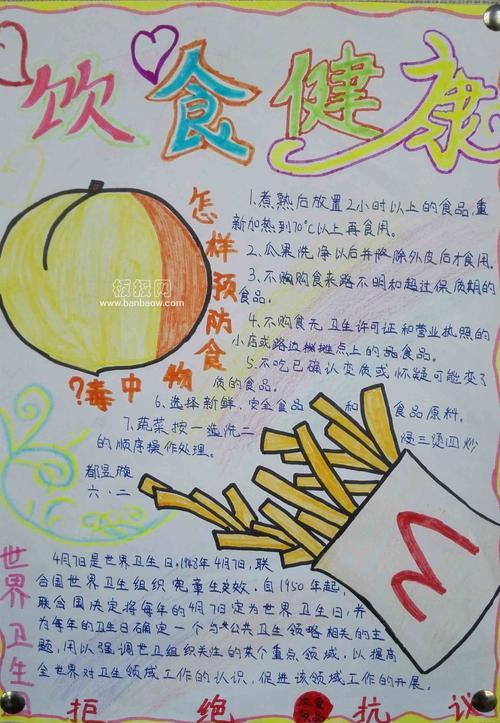 饮食健康
怎样预防食
物中毒?
板报网
www.banbaow.com
1.煮熟后放置2小时以上的食品,重
新加热到70℃以上再食用。
2.瓜果洗净以后并除外皮后才食用。
3.不购购食来路不明和超过保质期的
食品。
4.不购食无卫生许可证和营业执照的
小店或路边摊点上的品食品。
5.不吃已确认变质或怀疑可能变了
质的食品。
6.选择新鲜、安全食品和食品原料。
7.蔬菜按一选洗二浸三烫四炒
的顺序操作处理。
都昱旋
六.二
世界卫生日
4月7日是世界卫生日.1948年4月7日,联
合国世界卫生组织宪章生效.自1950年起,
联合国决定将每年的4月7日定为世界卫生日,并
为每年的卫生日确定一个与公共卫生领略相关的主
题,用以强调世卫组织关性的某个重点领域,以提高
全世界对卫生领域工作的认识,促进该领域工作的开展。
拒绝 抗议